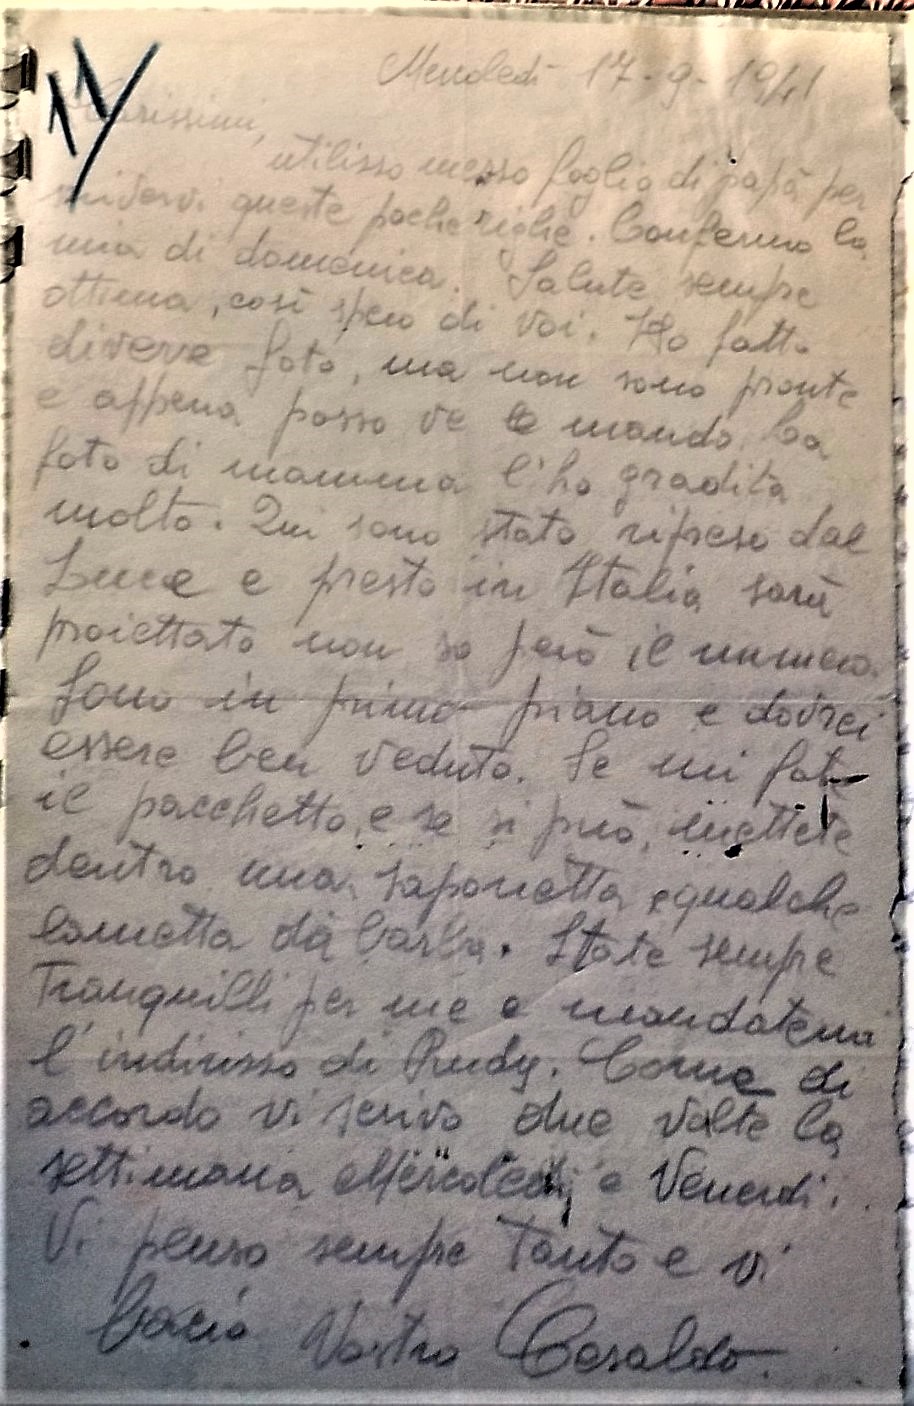 17
Mercoledì 17-9-1941
Carissimi,
utilisso messo foglio di papà per
scivervi queste poche righe. Confermo la
mia di domenica. Salute sempre
ottima, così spero di voi. Ho fatto
diverse foto, ma non sono pronte
e appena posso ve le mando. La
foto di mamma l'ho gradita
molto. Qui sono stato ripreso dal
Luce e presto in Italia sarà
proiettato non so però il numero.
Sono in primo piano e dovrei
essere ben veduto. Se mi fate
il pacchetto, e se si può, mettete
dentro una saponetta e qualche
lametta da barba. State sempre
Tranquilli per me e mandatemi
l'indirisso di Rudy. Come di
accordo vi scrivo due volte la
settimana Mercoledì e Venerdi.
Vi penso sempre Tanto e vi
bacio Vostro Cesaldo.